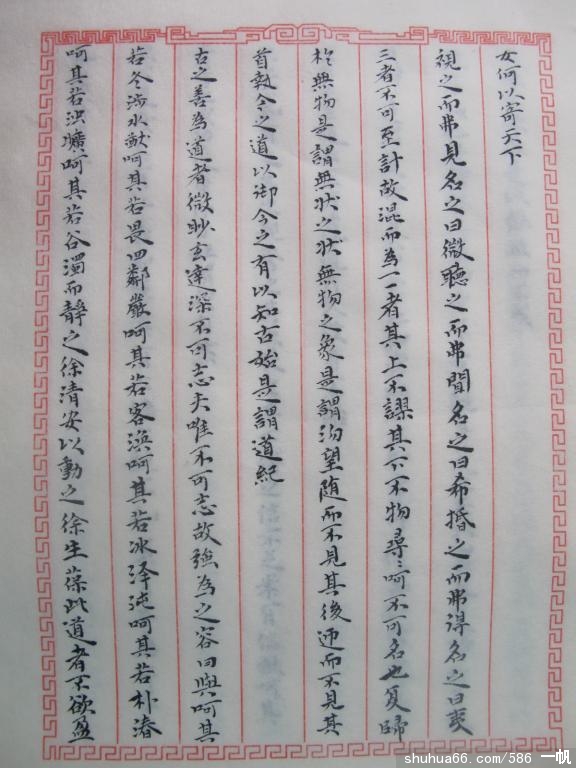 女何以寄天下
視之而弗見名之曰微聽之而弗聞名之曰希捪之而弗得名之曰夷
三者不可至計故混而為一一者其上不謬其下不物尋〻呵不可名也复歸
於無物是謂無狀之狀無物之象是謂沕望随而不見其後迎而不見其
首執今之道以御今之有以知古始是謂道紀
古之善為道者微眇玄達深不可志夫唯不可志故強為之容曰與呵其
若冬涉水猷呵其若畏四鄰嚴呵其若客渙呵其若冰泽沌呵其若朴湷
呵其若浊㬻呵其若谷濁而靜之徐清安以動之徐生葆此道者不欲盈
shuhua66.com/586 一帆